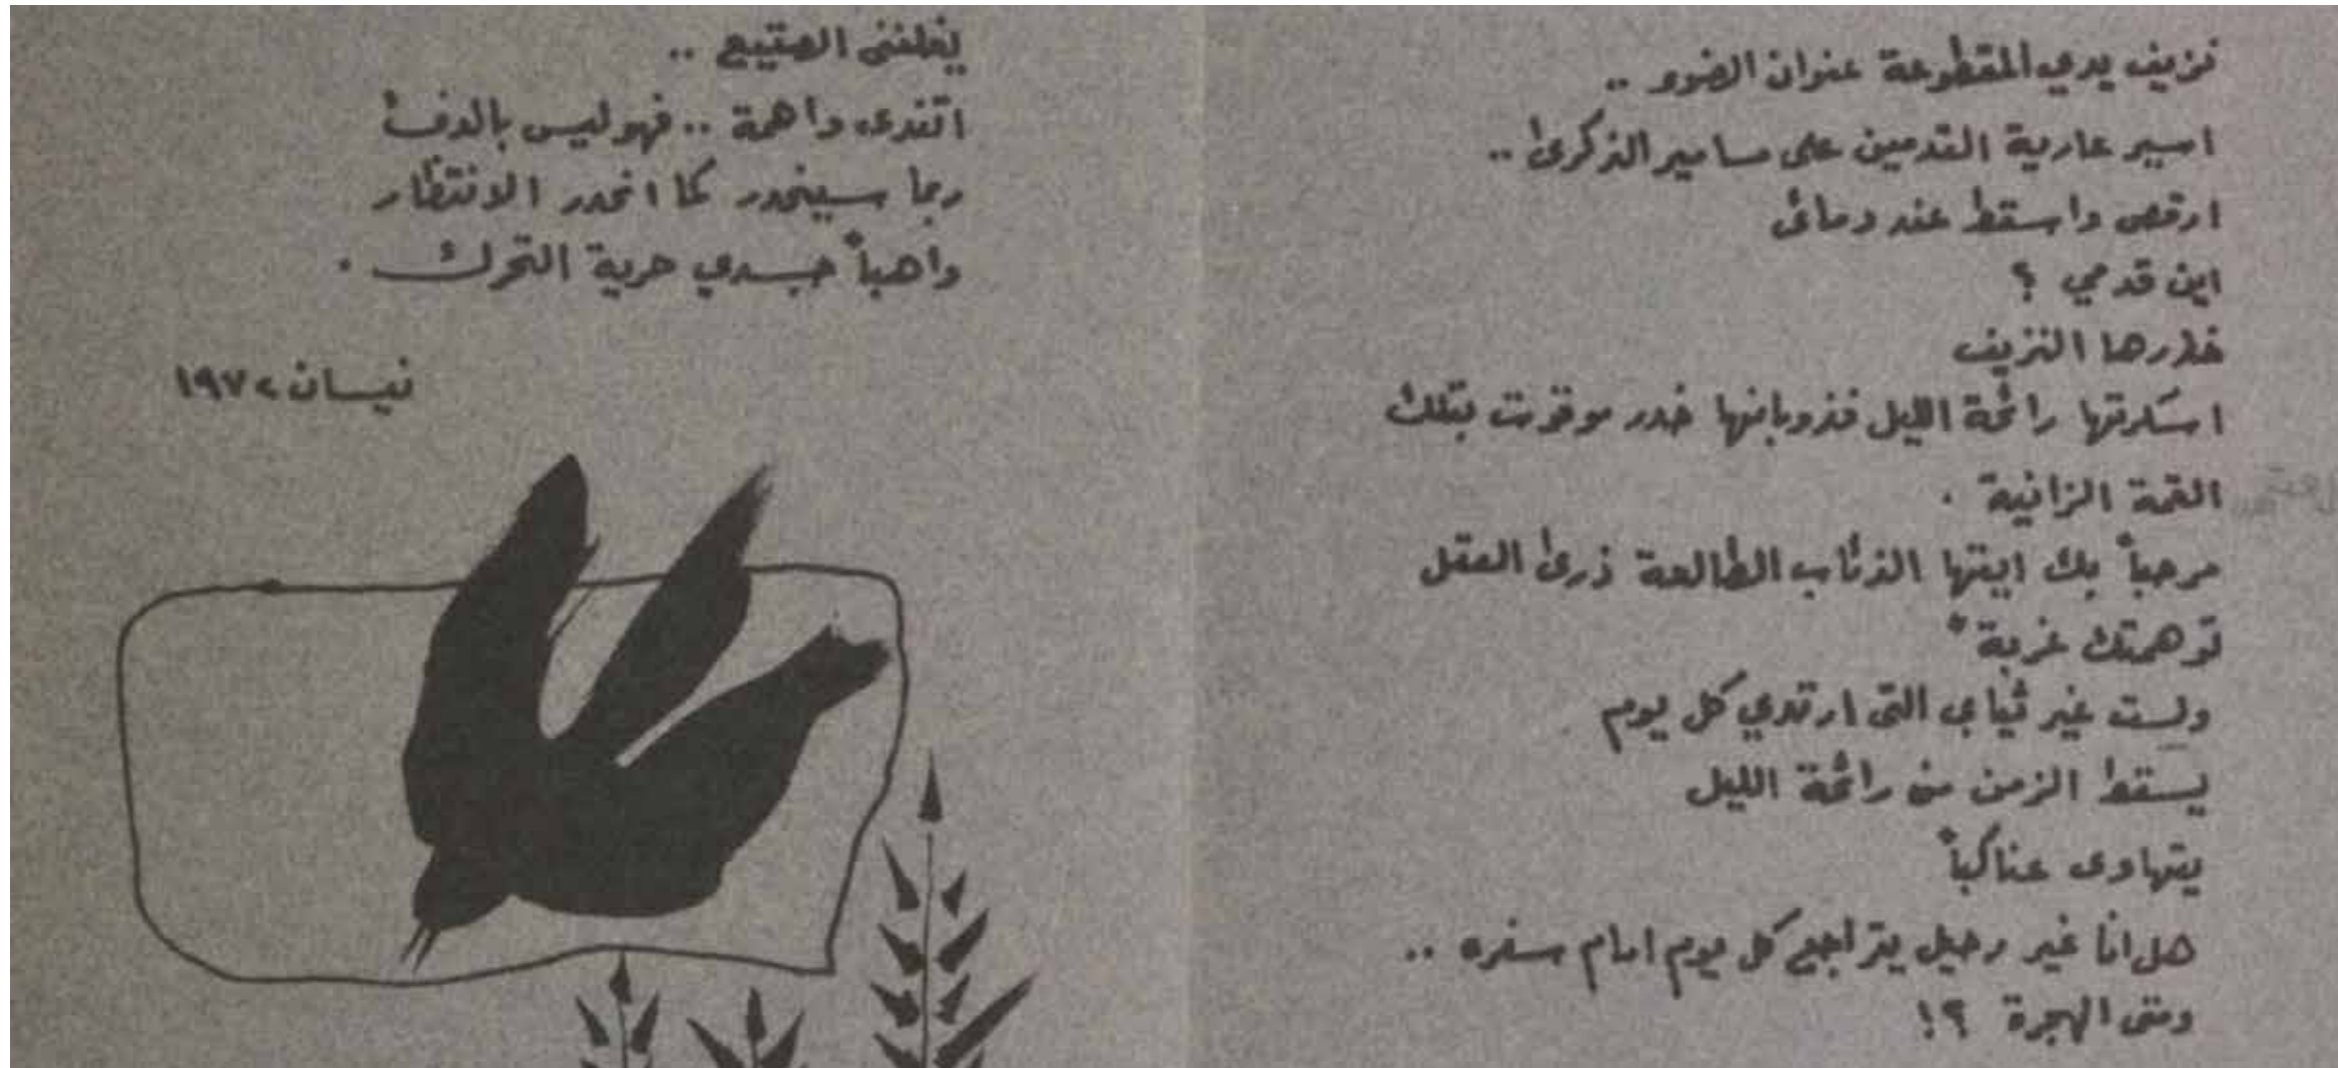 نزيف يدي المقطوعة عنوان الضوء ..
اسير عارية القدمين على مسامير الذكرىٰ ..
ارقص واسقط عند دمائي
اين قدمي ؟
خدرها النزيف
اسكرتها رائحة الليل فذوبانها خدر موقوت بتلك
القمة الزانية .
مرحباً بك ايتها الذئاب الطالعة ذرىٰ العقل
توهمتك غربةً
ولست غير ثيابي التي ارتدي كل يوم
يسقط الزمن من رائحة الليل
يتهاوى عناكباً
هل انا غير رحيل يتراجع كل يوم امام سفره ..
ومتى الهجرة ؟!
يغلفني الصقيع ..
اتغدى واهمة .. فهو ليس بالدفء
ربما سينحدر كما انحدر الانتظار
واهباً جسدي حرية التحرك .
نيسان ١٩٧٢